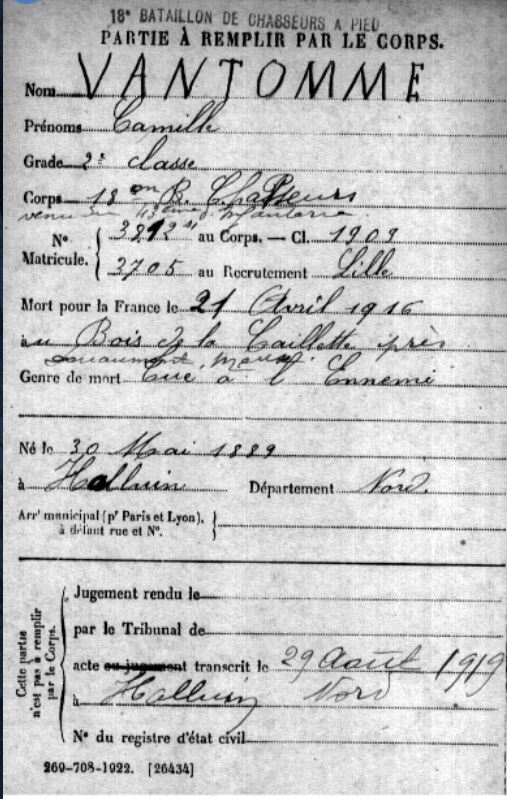 18e BATAILLON DE CHASSEURS A PIED
PARTIE À REMPLIR PAR LE CORPS.
Nom VANTOMME
Prénoms Camille
Grade 2e classe
Corps 18 B. Chasseurs
venu du d'infanterie
No Matricule. { au Corps. — Cl. 1909
3705 au Recrutement Lille
Mort pour la France le 21 Avril 1916
à au Bois de la Caillette près
Douaumont, Meuse
Genre de mort Tué à l'Ennemi
Né le 30 Mai 1889
à Halluin Département Nord.
Arrt municipal (pr Paris et Lyon), à défaut rue et No. }
Cette partie n'est pas à remplir par le Corps.
Jugement rendu le
par le Tribunal de
acte ou jugement transcrit le 29 août 1919
à Halluin Nord
No du registre d'état civil
269-708-1922. [26434]